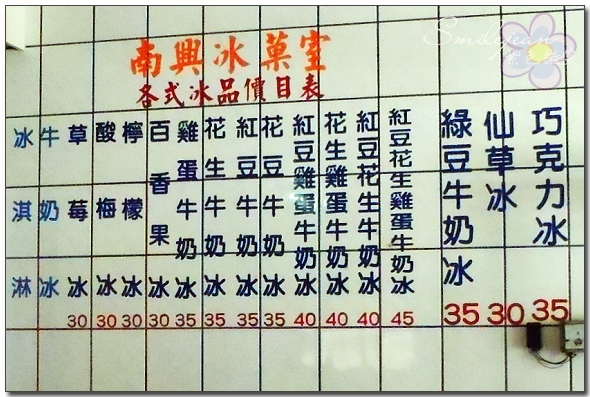 Smilejean
南興冰菓室
各式冰品價目表
冰淇淋
牛奶冰
草莓冰 30
酸梅冰 30
檸檬冰 30
百香果冰 30
雞蛋牛奶冰 35
花生牛奶冰 35
紅豆牛奶冰 35
花豆牛奶冰 35
紅豆雞蛋牛奶冰 40
花生雞蛋牛奶冰 40
紅豆花生牛奶冰 40
紅豆花生雞蛋牛奶冰 45
綠豆牛奶冰 35
仙草冰 30
巧克力冰 35